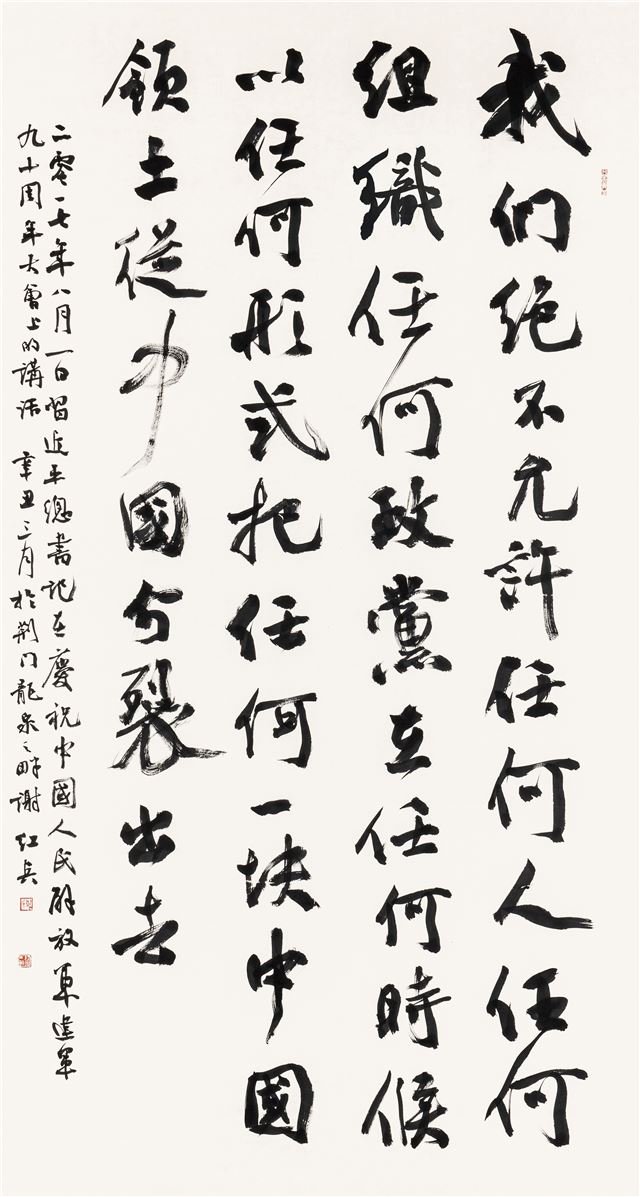 我们绝不允許任何人任何
组織任何政黨在任何時候
以任何形式把任何一块中國
领土從中國分裂出去
二零一七年八月一日習近平總書记在慶祝中國人民解放軍建軍
九十周年大會上的講话 辛丑三月於荆门龍泉之畔谢红兵